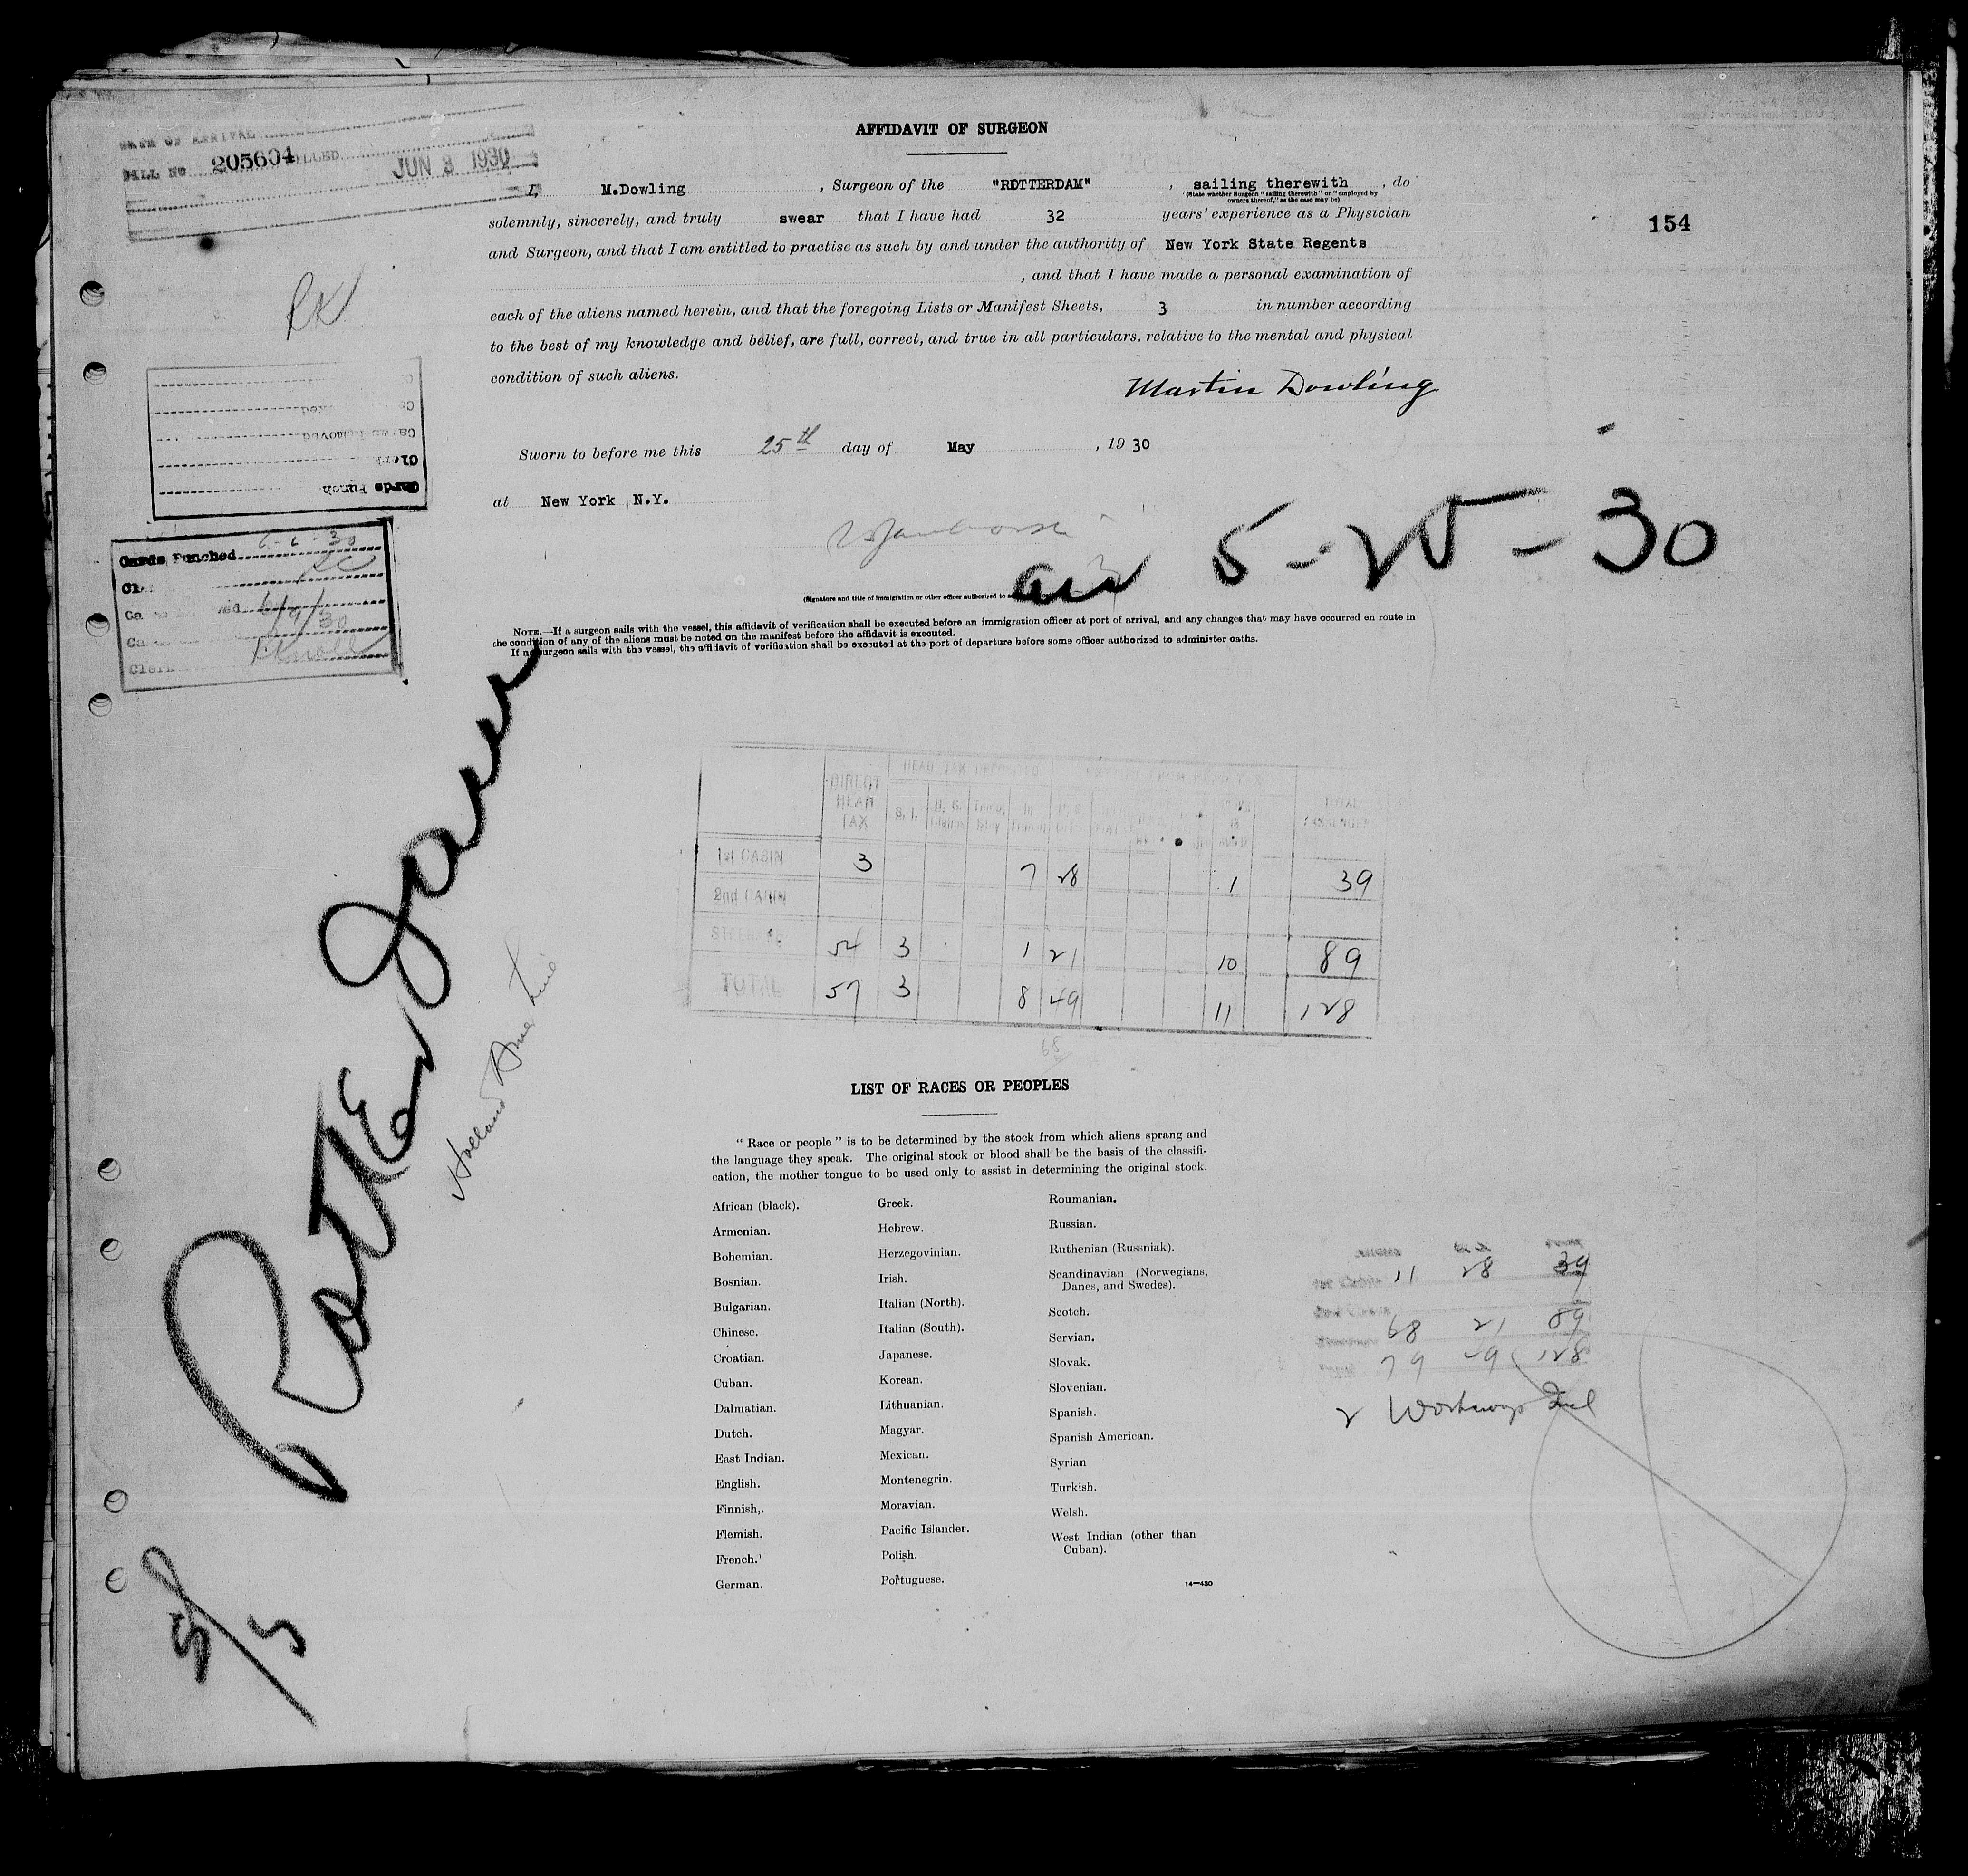 AFFIDAVIT OF SURGEON
DATE OF ARRIVAL
BILL NO 205604 BILLED JUN 3 1930
154
I, M.Dowling , Surgeon of the "ROTTERDAM" , sailing therewith , do
(State whether Surgeon "sailing therewith" or "employed by
owners thereof," as the case may be)
solemnly, sincerely, and truly swear that I have had 32 years' experience as a Physician
and Surgeon, and that I am entitled to practise as such by and under the authority of New York State Regents
, and that I have made a personal examination of
each of the aliens named herein, and that the foregoing Lists or Manifest Sheets, 3 in number according
to the best of my knowledge and belief, are full, correct, and true in all particulars. relative to the mental and physical
condition of such aliens.
Martin Dowling
Sworn to before me this 25th day of May , 19 30
at New York , N.Y.
5-25-30
(Signature and title of immigration or other officer authorized to
NOTE.—If a surgeon sails with the vessel, this affidavit of verification shall be executed before an immigration officer at port of arrival, and any changes that may have occurred en route in
the condition of any of the aliens must be noted on the manifest before the affidavit is executed.
If no surgeon sails with the vessel, the affidavit of verification shall be executed at the port of departure before some officer authorized to administer oaths.
Clerk
Cards Punch
Cards Punched 6-6-30
6/9/30
Clerk
Rotterdam
Holland Amer Line
DIRECT HEAD TAX
HEAD TAX
S. I.
TOTAL
1st CABIN 3 7 28 1 39
2nd CABIN
STEERAGE 54 3 1 21 10 89
TOTAL 57 3 8 49 11 128
68
LIST OF RACES OR PEOPLES
" Race or people " is to be determined by the stock from which aliens sprang and
the language they speak. The original stock or blood shall be the basis of the classifi-
cation, the mother tongue to be used only to assist in determining the original stock.
African (black).
Armenian.
Bohemian.
Bosnian.
Bulgarian.
Chinese.
Croatian.
Cuban.
Dalmatian.
Dutch.
East Indian.
English.
Finnish,.
Flemish.
French.
German.
Greek.
Hebrew.
Herzegovinian.
Irish.
Italian (North).
Italian (South).
Japanese.
Korean.
Lithuanian.
Magyar.
Mexican.
Montenegrin.
Moravian.
Pacific Islander.
Polish.
Portuguese.
Roumanian.
Russian.
Ruthenian (Russniak).
Scandinavian (Norwegians,
Danes, and Swedes).
Scotch.
Servian.
Slovak.
Slovenian.
Spanish.
Spanish American.
Syrian
Turkish.
Welsh.
West Indian (other than
Cuban).
14—430
11 28 39
68 21 89
79 49 128
2 Workaways